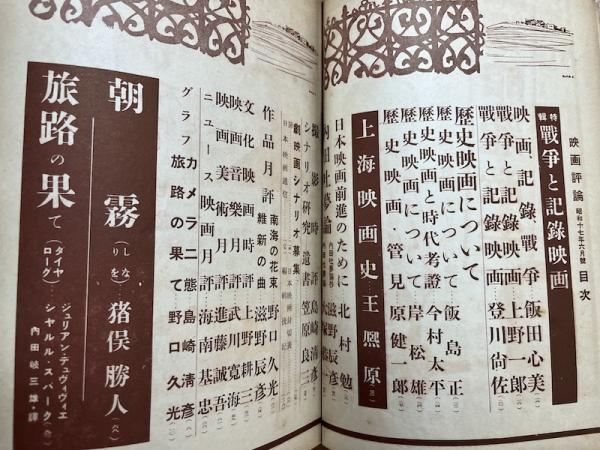 映画評論 昭和十七年六月號 目次
特輯 戰爭と記錄映画
映画、記錄、戰爭 飯田心美
戰爭と記錄映画 上野一郎
戰爭と記錄映画 登川尙佐
歷史映画について 飯島正
歷史映画について 今村太平
歷史映画と時代考證 岸松雄
歷史映画・管見 原健一郎
上海映画史 王熈原
日本映画前進のために 北村勉
内田吐夢論
撮影時評 島崎清彦
シナリオ研究遺書 笠原良三
劇映画シナリオ募集
作品月評
南海の花束 野口久光
維新の曲 滋野辰彦
文化映画時評 上野耕三
映画音樂月評 武川寛海
映画美術月評 進藤誠吾
ニュース映画月評 海南基忠
カメラ二態 島崎清彦
グラフ 旅路の果て 野口久光
朝霧 (しなりを) 猪俣勝人
旅路の果て (ダイヤローグ)
ジュリアン・デュヴィヴィエ
シャルル・スパーク
内田岐三雄・譯